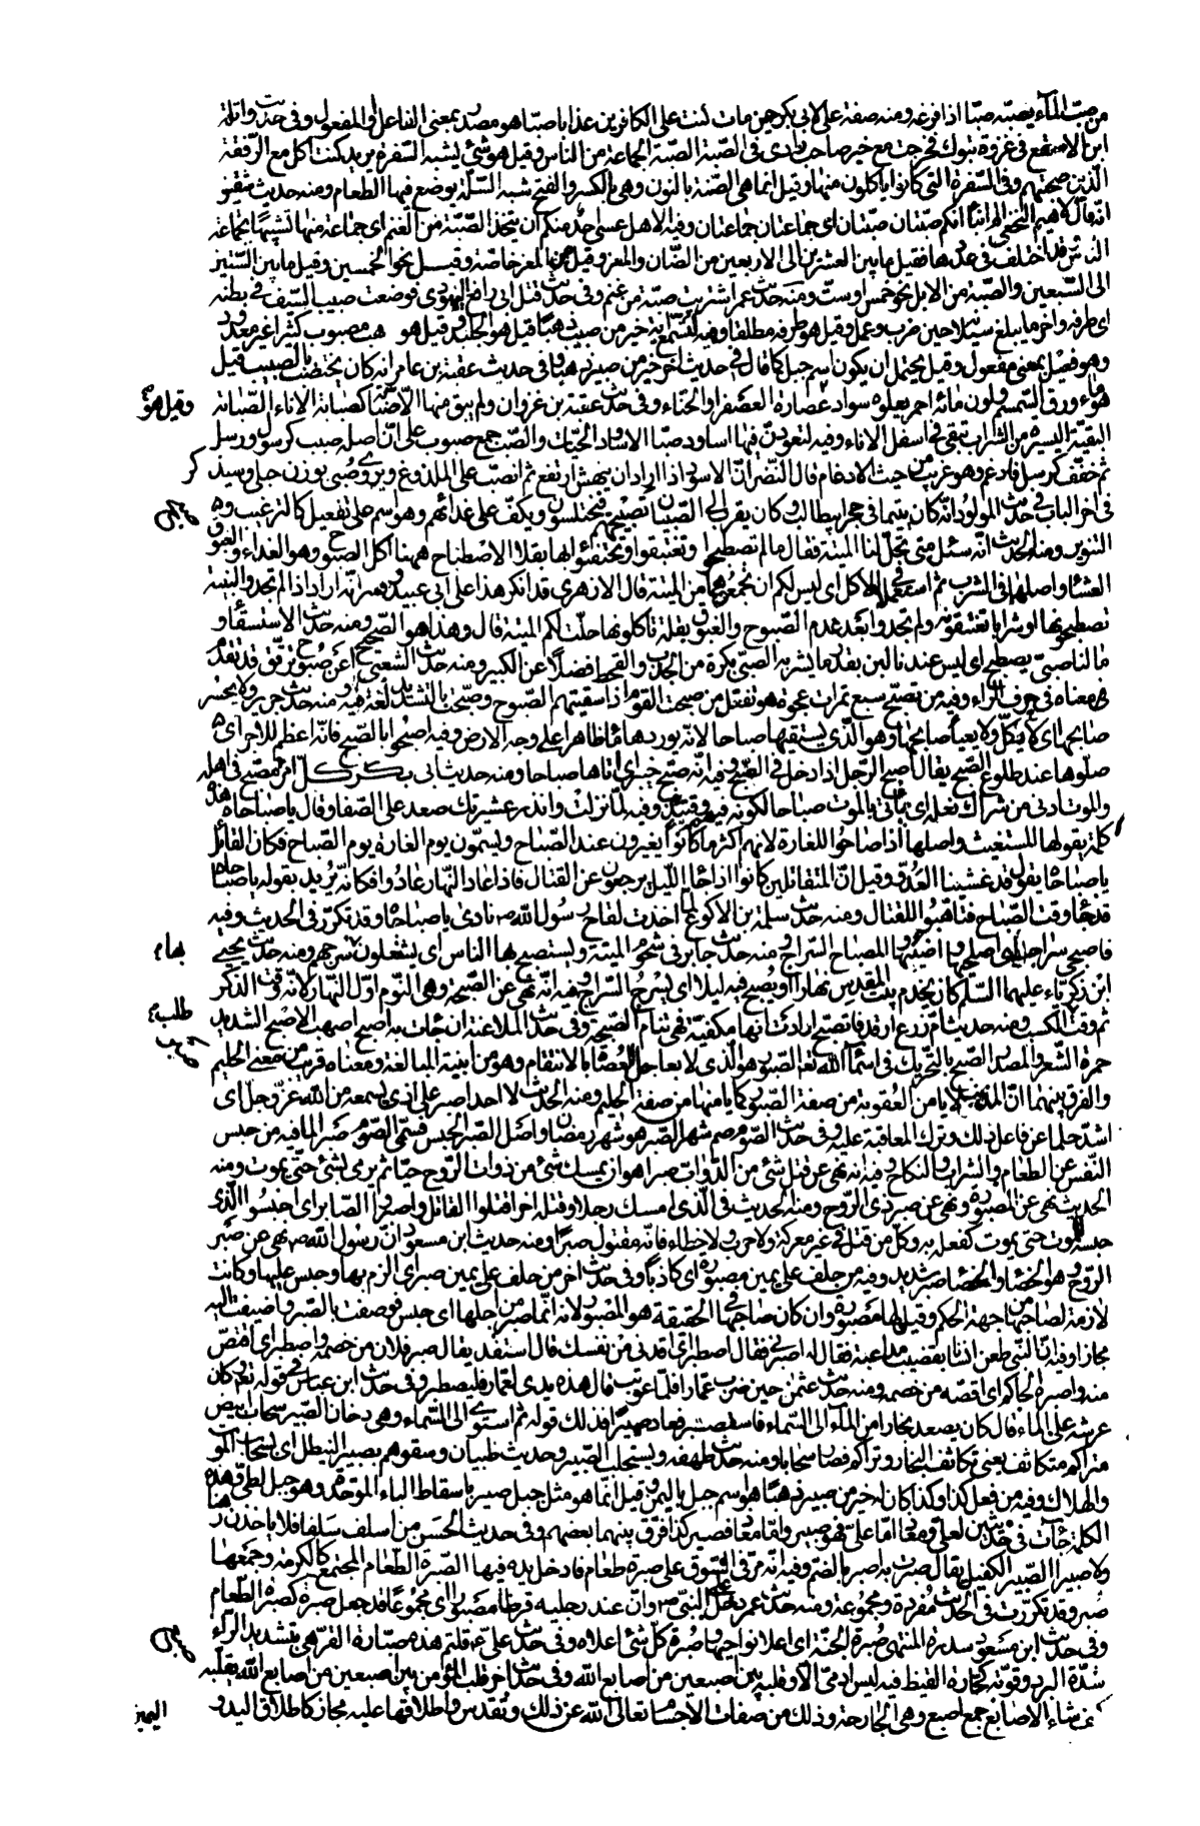 من صب الماء يصبه صبا اذا فرغه ومنه صفة على لابى بكر حين مات كنت على الكافرين عذابا صبا هو مصدر بمعنى الفاعل او المفعول وفى حديث واثلة
ابن الاسقع فى غزوة تبوك فخرجت مع خير صاحب زادى فى الصبة الصبة الجماعة من الناس وقيل هو شئ يشبه السفرة يريد كنت آكل مع الرفقة
الذين صحبتهم وفى السفرة التى كانوا ياكلون منها وقيل انما هى الصنة بالنون وهى بالكسر والفتح شبه السلة يوضع فيها الطعام ومنه حديث شقيق
انه قال لابراهيم النخعى الم انبأ انكم صبتان صبتان اى جماعتان جماعتان وفيه الا هل عسى احد منكم ان يتخذ الصبة من الغنم اى جماعة منها تشبيها بجماعة
الناس وقد اختلف فى عددها فقيل ما بين العشرين الى الاربعين من الضان والمعز وقيل من المعز خاصة وقيل نحو الخمسين وقيل ما بين الستين
الى السبعين والصبة من الابل نحو خمس او ست ومنه حديث عمر اشتريت صبة من غنم وفى حديث قتل ابى رافع اليهودى فوضعت صبيب السيف فى بطنه
اى طرفه وآخر ما يبلغ سيلانه حين ضرب وعمل وقيل هو طرفه مطلقا وفيه لتسمع آية خير من صبيب ذهبا قيل هو الجليد وقيل هو ذهب مصبوب كثيرا غير معدود
وهو فعيل بمعنى مفعول وقيل يحتمل ان يكون اسم جبل كما قال فى حديث آخر خير من صبير ذهبا وفى حديث عقبة بن عامر انه كان يختضب بالصبيب قيل
هو ماء ورق السمسم ولون مائه احمر يعلوه سواد عصارة العصفر او الحناء وفى حديث عتبة بن غزوان ولم يبق منها الا صبابة كصبابة الاناء الصبابة وقيل هو
البقية اليسيرة من الشراب تبقى فى اسفل الاناء وفيه لتعودن فيها اساود صبا الاساود الحيات والصب جمع صبوب على ان اصله صبب كرسول ورسل
ثم خفف كرسل فادغم وهو غريب من حيث الادغام قال النضر ان الاسود اذا اراد ان ينهش ارتفع ثم انصب على الملدوغ ويروى صبى بوزن حبلى وسيذكر
فى اخر الباب فى حديث المولود انه كان يتيما فى حجر ابيطالب وكان يقرب الى الصبيان تصبيحهم فيختلسون ويكف على غدائهم وهو اسم على تفعيل كالترغيب و صبح
التنوير ومنه الحديث انه سئل متى تحل لنا الميتة فقال ما لم تصطبحوا وتغتبقوا او تحتفئوا بها بقلا الاصطباح ههنا اكل الصبوح وهو الغداء والغبوق
العشاء واصلها فى الشرب ثم استعملا فى الاكل اى ليس لكم ان تجمعوهما من الميتة قال الازهرى قد انكر هذا على ابى عبيد وفسر انه اراد اذا لم تجدوا لبينة
تصطبحونها او شرابا تغتبقونه ولم تجدوا بعد عدم الصبوح والغبوق بقلة تاكلونها حلت لكم الميتة قال وهذا هو الصحيح ومنه حديث الاستسقاء و
ما لنا صبى يصطبح اى ليس عندنا لبن بقدر ما يشربه الصبى بكرة من الجدب والقحط فضلا عن الكبير ومنه حديث الشعبى اعن صبوح ترقق قد تقدم
معناه فى حرف الراء وفيه من تصبح سبع تمرات عجوة هو تفعل من صبحت القوم اذا سقيتهم الصبوح وصبحت بالتشديد لغة فيه ومنه حديث جرير ولا يحسر
صابحها اى لا يكل ولا يعيا صابحها وهو الذى يسقيها صباحا لانه يوردها ماء ظاهرا على وجه الارض وفيه اصبحوا بالصبح فانه اعظم للاجر اى
صلوها عند طلوع الصبح يقال اصبح الرجل اذا دخل فى الصبح وفيه انه صبح خيبر اى اتاها صباحا ومنه حديث ابى بكر كل امرئ مصبح فى اهله
والموت ادنى من شراك نعله اى ماتى بالموت صباحا لكونه فيهم وقتئذ وفيه لما نزلت وانذر عشيرتك صعد على الصفا وقال يا صباحاه هذه
كلمة يقولها المستغيث واصلها اذا صاحوا للغارة لانهم اكثر ما كانوا يغيرون عند الصباح ويسمون يوم الغارة يوم الصباح فكان القائل
يا صباحاه يقول قد غشينا العدو وقيل ان المتقاتلين كانوا اذا جاء الليل يرجعون عن القتال فاذا عاد النهار عادوا فكانه يريد بقوله يا صباحاه
قد جاء وقت الصباح فتاهبوا للقتال ومنه حديث سلمة بن الاكوع لما اخذت لقاح رسول الله نادى يا صباحاه وقد تكرر فى الحديث وفيه
فاصبحى سراجك اى اصلحيها واضيئيها والمصباح السراج ومنه حديث جابر فى شحوم الميتة ويستصبح بها الناس اى يشعلون سرجهم ومنه حديث يحيى بها
ابن زكرياء عليهما السلام كان يخدم بيت المقدس نهارا ويصبح فيه ليلا اى يسرج السراج وفيه انه نهى عن الصبحة وهى النوم اول النهار لانه وقت الذكر
ثم وقت طلب الكسب ومنه حديث ام زرع ارقد فاتصبح ارادت انها مكفية فهى تنام الصبحة وفى حديث الملاعنة ان جاءت به اصبح اصهب الاصبح الشديد
حمرة الشعر والمصدر الصبح بالتحريك فى اسماء الله تعالى الصبور هو الذى لا يعاجل العصاة بالانتقام وهو من ابنية المبالغة ومعناه قريب من معنى الحليم صبر
والفرق بينهما ان المذنب لا يامن العقوبة من صفة الصبور كما يامنها من صفة الحليم ومنه الحديث لا احد اصبر على اذى يسمعه من الله عز وجل اى
اشد حلما عن فاعل ذلك وترك المعاقبة عليه وفى حديث الصوم صم شهر الصبر هو شهر رمضان واصل الصبر الحبس فسمى الصوم صبرا لما فيه من حبس
النفس عن الطعام والشراب والنكاح وفيه انه نهى عن قتل شئ من الدواب صبرا هو ان يمسك شئ من ذوات الروح حيا ثم يرمى بشئ حتى يموت ومنه
الحديث نهى عن المصبورة ونهى عن صبر ذى الروح ومنه الحديث فى الذى امسك رجلا وقتله آخر اقتلوا القاتل واصبروا الصابر اى احبسوا الذى
حبسه للموت حتى يموت كفعله به وكل من قتل فى غير معركة ولا حرب ولا خطاء فانه مقتول صبرا ومنه حديث ابن مسعود ان رسول الله نهى عن صبر
الروح وهو الخصاء والخصاء صبر شديد وفيه من حلف على يمين مصبورة اى كاذبا وفى حديث اخر من حلف على يمين صبر اى الزم بها وحبس عليها وكانت
لازمة لصاحبها من جهة الحكم وقيل لها مصبورة وان كان صاحبها فى الحقيقة هو المصبور لانه انما صبر من اجلها اى حبس فوصفت بالصبر واضيفت اليه
مجازا وفيه ان النبى طعن انسانا بقضيب مداعبة فقال له اصبرنى فقال اصطبر اى اقدنى من نفسك قال استقد يقال صبر فلان من خصمه واصطبر اى اقتص
منه واصبره الحاكم اى اقصه من خصمه ومنه حديث عثمن حين ضرب عمارا فلما عوتب قال هذه يدى لعمار فليصطبر وفى حديث ابن عباس فى قوله تعالى وكان
عرشه على الماء قال كان يصعد بخارا من الماء الى السماء فاستصبر فعاد صبيرا فذلك قوله ثم استوى الى السماء وهى دخان الصبير سحاب ابيض
متراكم متكاثف يعنى تكاثف البخار وتراكم فصار سحابا ومنه حديث طهفة ويستحلب الصبير وحديث ظبيان وسقوهم بصبير النيطل اى بسحاب الموت
والهلاك وفيه من فعل كذا وكذا كان له خير من صبير ذهبا هو اسم جبل باليمن وقيل انما هو مثل جبل صير باسقاط الباء الموحدة وهو جبل لطى وهذه
الكلمة جاءت فى حديثين لعلى ومعاذ اما على فهو صير واما معاذ فصبير كذا فرق بينهما بعضهم وفى حديث الحسن من اسلف سلفا فلا ياخذن رهنا
ولا صبيرا الصبير الكفيل يقال صبرت به اصبر بالضم وفيه انه مر فى السوق على صبرة طعام فادخل يده فيها الصبرة الطعام المجتمع كالكومة وجمعها
صبر وقد تكررت فى الحديث مفردة ومجموعة ومنه حديث عمر دخل على النبى وان عند رجليه قرظا مصبورا اى مجموعا قد جعل صبرة كصبرة الطعام
وفى حديث ابن مسعود سدرة المنتهى صبر الجنة اى اعلا نواحيها وصبر كل شئ اعلاه وفى حديث على قلتم هذه صبارة القر هى بتشديد الراء صبع
شدة البرد وقوته كحمارة القيظ فيه ليس ادمى الا وقلبه بين اصبعين من اصابع الله وفى حديث اخر قلب المؤمن بين اصبعين من اصابع الله يقلبه
كيف يشاء الاصابع جمع اصبع وهى الجارحة وذلك من صفات الاجسام تعالى الله عن ذلك وتقدس واطلاقها عليه مجاز كاطلاق اليد و
اليمين